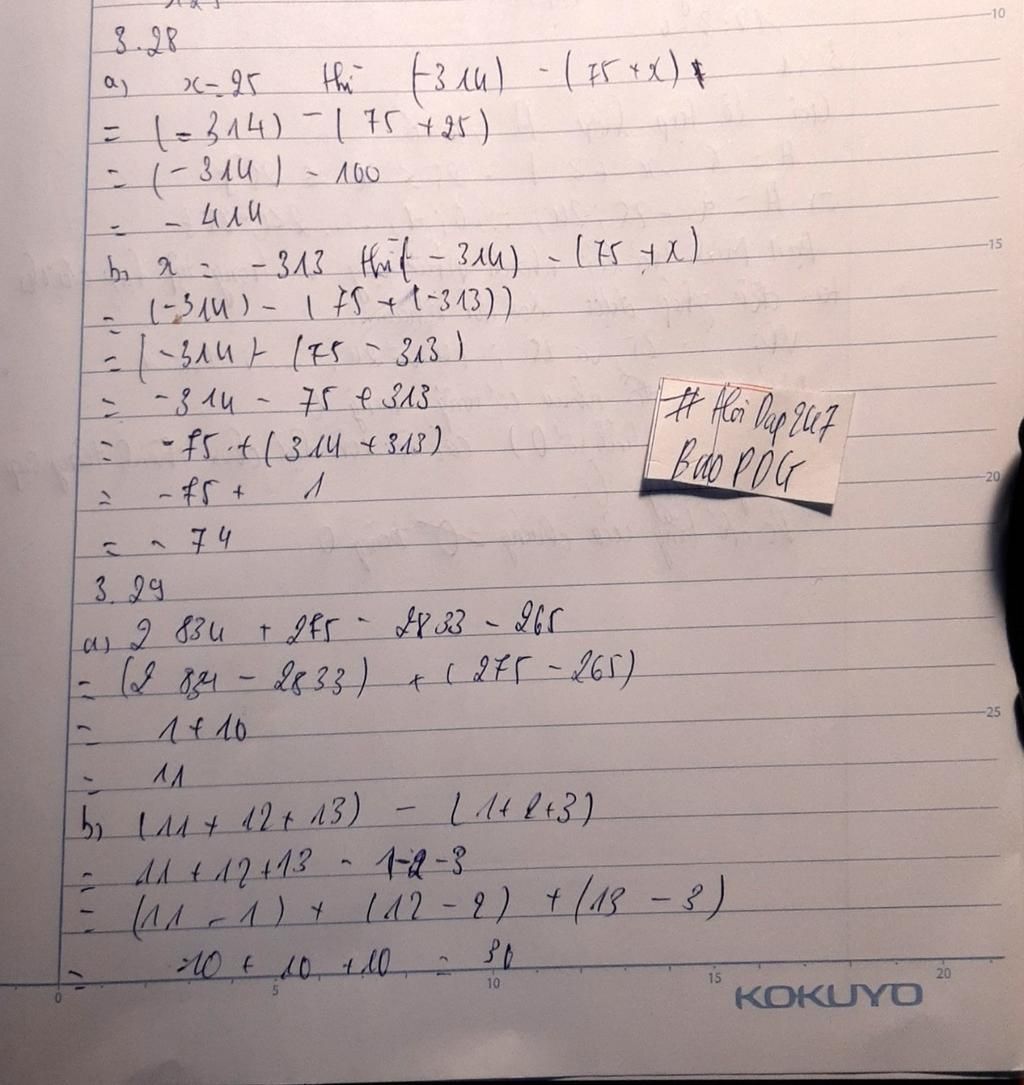 3.28
a) x=25 thì (-314) - (75 + x)
= (-314) - (75 + 25)
= (-314) - 100
= - 414
b, x = -313 thì (-314) - (75 + x)
= (-314) - (75 + (-313))
= (-314) - (75 - 313)
= -314 - 75 + 313
= -75 + (314 + 313)
= -75 + 1
= - 74
# Hoi Dap 247
Bao PDG
3. 29
a) 2 834 + 275 - 2833 - 265
= (2 834 - 2833) + (275 - 265)
= 1 + 10
= 11
b, (11 + 12 + 13) - (1+2+3)
= 11 + 12 +13 - 1-2-3
= (11 - 1) + (12 - 2) + (13 - 3)
= 10 + 10 + 10 = 30
10
15
20
25
0 5 10 15 20
KOKUYO